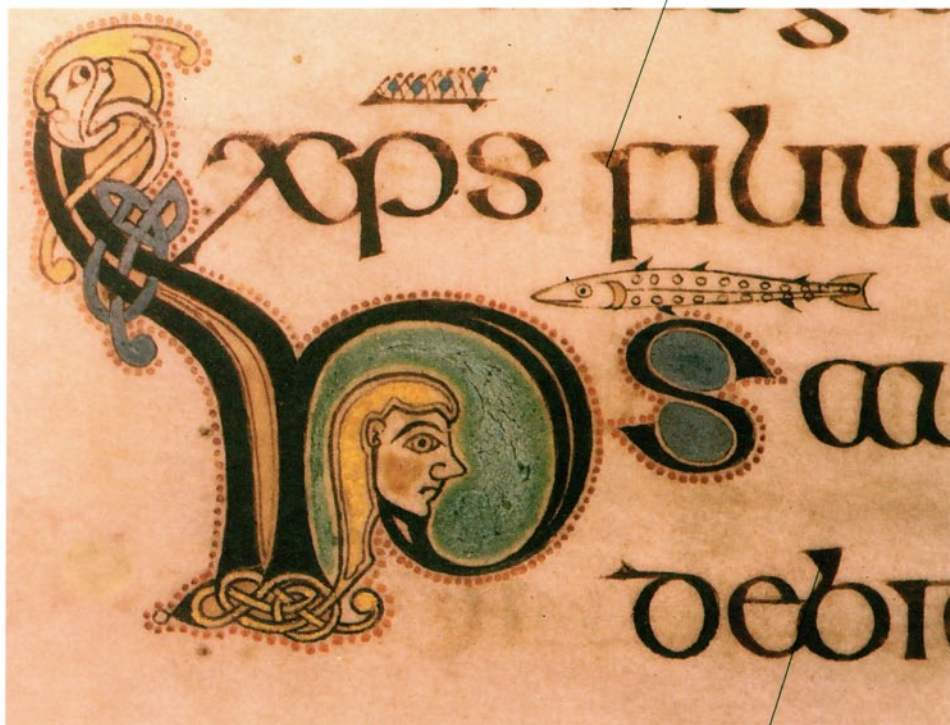 xps filius
hs au
debi